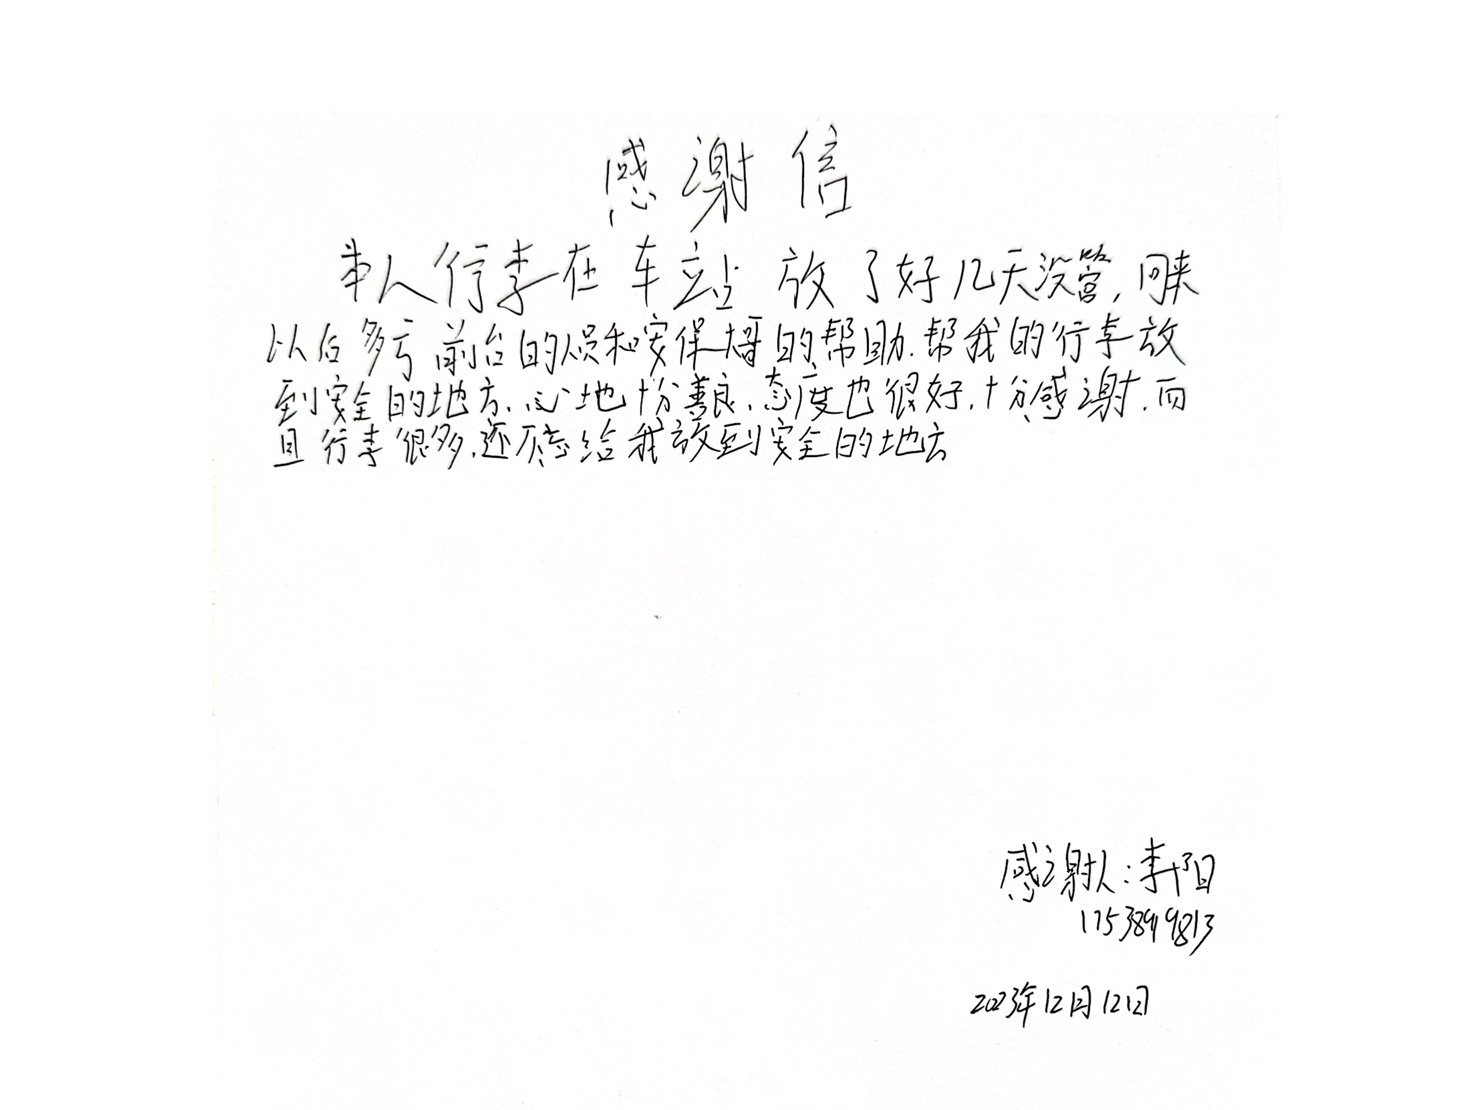 感谢信
本人行李在车站放了好几天没管，回来
以后多亏前台的人员和安保大哥的帮助.帮我的行李放
到安全的地方、心地十分善良、态度也很好、十分感谢、而
且行李很多、还愿意给我放到安全的地方
感谢人：李阳
2023年12月12日